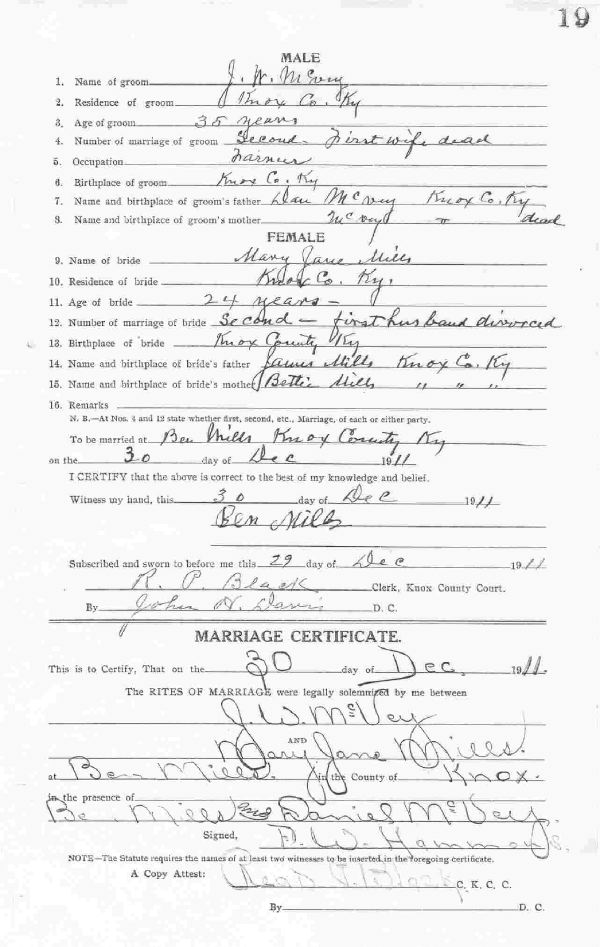 19
MALE
1. Name of groom J. W. McVey
2. Residence of groom Knox Co. Ky
3. Age of groom 35 years
4. Number of marriage of groom Second - First wife dead
5. Occupation Farmer
6. Birthplace of groom Knox Co. Ky
7. Name and birthplace of groom's father Dan McVey Knox Co. Ky
8. Name and birthplace of groom's mother McVey dead
FEMALE
9. Name of bride Mary Jane Mills
10. Residence of bride Knox Co. Ky.
11. Age of bride 24 years -
12. Number of marriage of bride Second - first husband divorced
13. Birthplace of bride Knox County Ky
14. Name and birthplace of bride's father James Mills Knox Co. Ky
15. Name and birthplace of bride's mother Bettie Mills " " "
16. Remarks
N. B.—At Nos. 4 and 12 state whether first, second, etc., Marriage, of each or either party.
To be married at Ben Mills Knox County Ky
on the 30 day of Dec 1911
I CERTIFY that the above is correct to the best of my knowledge and belief.
Witness my hand, this 30 day of Dec 1911
Ben Mills
Subscribed and sworn to before me this 29 day of Dec 1911
R. P. Black Clerk, Knox County Court.
By John H. Davis D. C.
MARRIAGE CERTIFICATE.
This is to Certify, That on the 30 day of Dec. 1911.
The RITES OF MARRIAGE were legally solemnized by me between
J. W. McVey
AND
Mary Jane Mills.
at Ben Mills. in the County of Knox.
in the presence of
Ben Mills and Daniel McVey.
Signed,
NOTE—The Statute requires the names of at least two witnesses to be inserted in the foregoing certificate.
A Copy Attest: C. K. C. C.
By D. C.